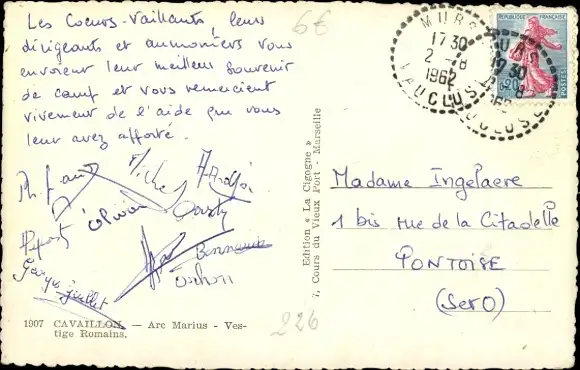 Les Coeurs-Vaillants, leurs
dirigeants et aumoniers vous
envoient leur meilleur souvenir
de camp et vous remercient
vivement de l'aide que vous
leur avez apporté.
Michel
Olivier
Georges
6€
MURS
17 30
2 - 8
1962
VAUCLUSE
RÉPUBLIQUE FRANÇAISE
0,20
POSTES
Edition « La Cigogne »
7, Cours du Vieux Port Marseille
Madame Ingelaere
1 bis rue de la Citadelle
PONTOISE
(SetO)
226
1907 CAVAILLON. — Arc Marius - Ves-
tige Romains.